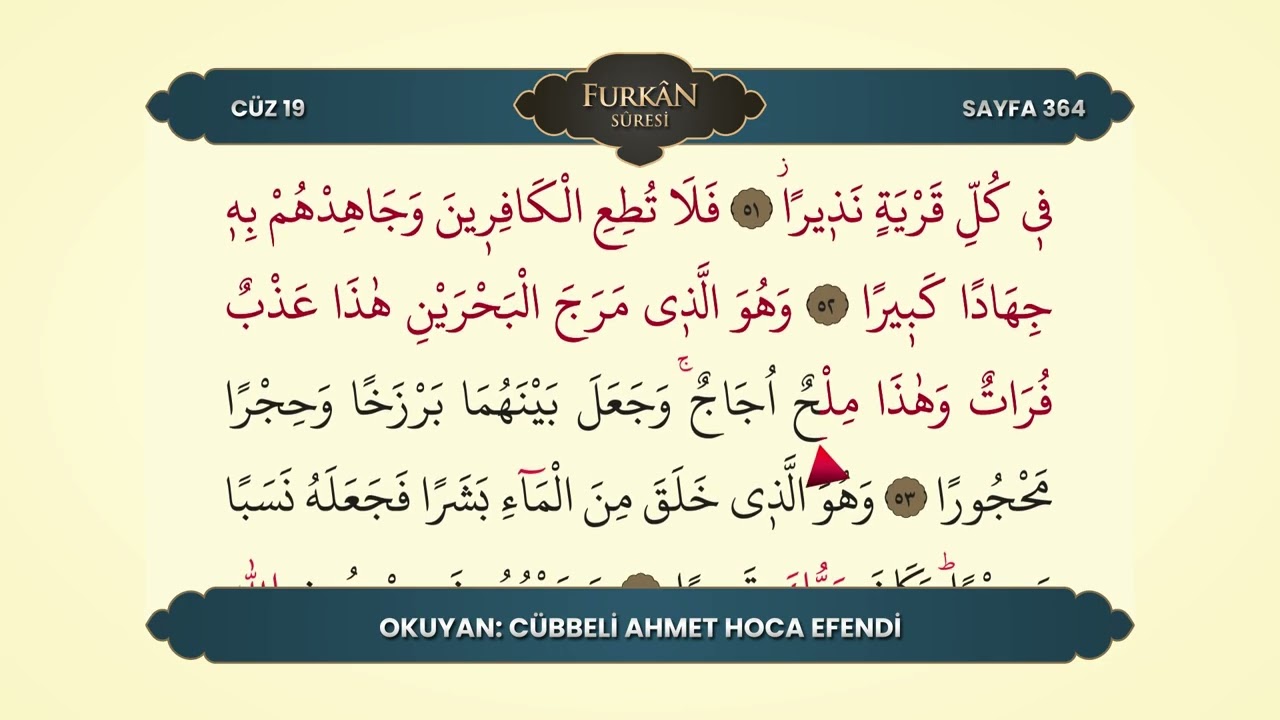 CÜZ 19
FURKÂN
SÛRESİ
SAYFA 364
فٖي كُلِّ قَرْيَةٍ نَذٖيرًاۘ ﴿٥١﴾ فَلَا تُطِعِ الْكَافِرٖينَ وَجَاهِدْهُمْ بِهٖ
جِهَادًا كَبٖيرًا ﴿٥٢﴾ وَهُوَ الَّذٖى مَرَجَ الْبَحْرَيْنِ هٰذَا عَذْبٌ
فُرَاتٌ وَهٰذَا مِلْحٌ اُجَاجٌۚ وَجَعَلَ بَيْنَهُمَا بَرْزَخًا وَحِجْرًا
مَحْجُورًا ﴿٥٣﴾ وَهُوَ الَّذٖى خَلَقَ مِنَ الْمَٓاءِ بَشَرًا فَجَعَلَهُ نَسَبًا
OKUYAN: CÜBBELİ AHMET HOCA EFENDİ